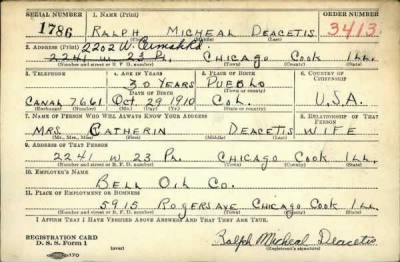 SERIAL NUMBER 1. NAME (Print) ORDER NUMBER
1786 RALPH MICHEAL DEACETIS 3413
(First) (Middle) (Last)
2. ADDRESS (Print) 2202 W.
2241 W 23 PL. CHICAGO COOK ILL.
(Number and street or R. F. D. number) (Town) (County) (State)
3. TELEPHONE 4. AGE IN YEARS 5. PLACE OF BIRTH 6. COUNTRY OF CITIZENSHIP
30 YEARS PUEBLO
DATE OF BIRTH (Town or county)
CANAL 7661 OCT. 29 1910 COL. U.S.A.
(Exchange) (Number) (Mo.) (Day) (Yr.) (State or country)
7. NAME OF PERSON WHO WILL ALWAYS KNOW YOUR ADDRESS 8. RELATIONSHIP OF THAT PERSON
MRS. CATHERIN DEACETIS WIFE
(Mr., Mrs., Miss) (First) (Middle) (Last)
9. ADDRESS OF THAT PERSON
2241 W 23 PL. CHICAGO COOK ILL.
(Number and street or R. F. D. number) (Town) (County) (State)
10. EMPLOYER'S NAME
BELL OIL CO.
11. PLACE OF EMPLOYMENT OR BUSINESS
5915 ROGERS AVE CHICAGO COOK ILL.
(Number and street or R. F. D. number) (Town) (County) (State)
I AFFIRM THAT I HAVE VERIFIED ABOVE ANSWERS AND THAT THEY ARE TRUE.
REGISTRATION CARD
D. S. S. Form 1 (over) Ralph Micheal Deacetis
(Registrant's signature)